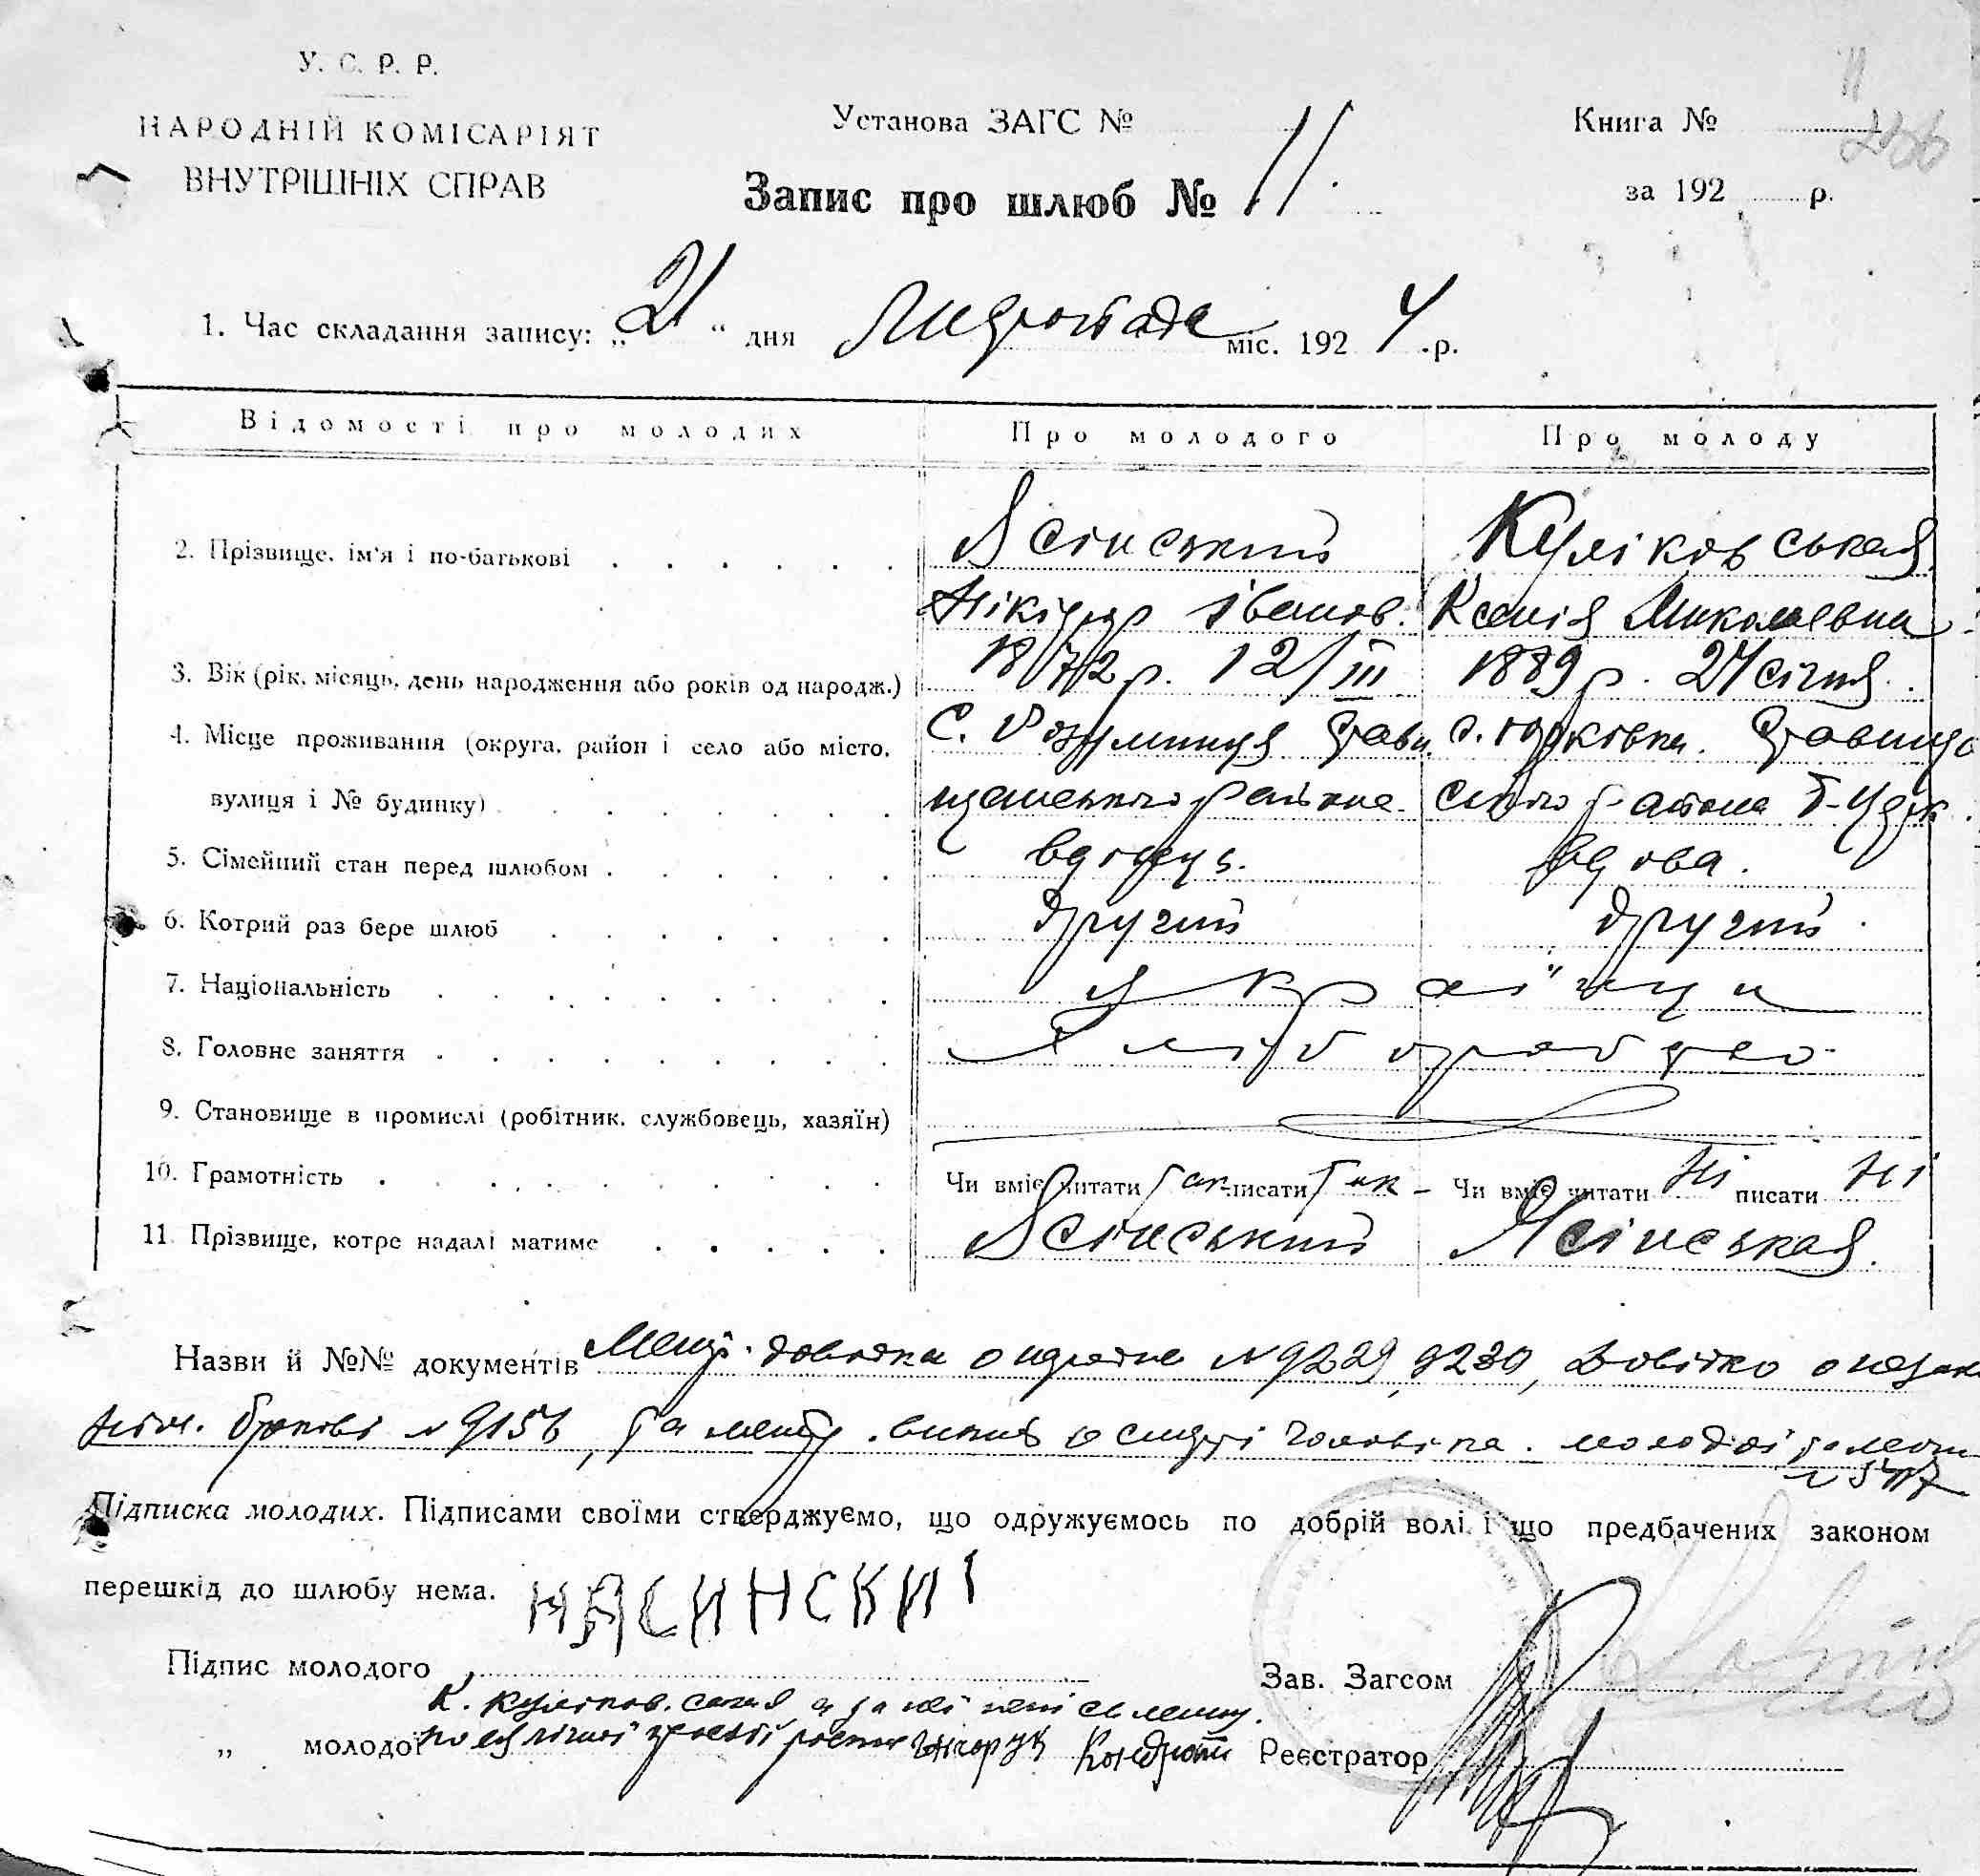 У. С. Р. Р.
НАРОДНІЙ КОМІСАРІЯТ
ВНУТРІШНІХ СПРАВ
Установа ЗАГС №
Запис про шлюб № 11.
Книга №
за 192 р.
1. Час складання запису: „21“ дня Листопада міс. 1924 р.
Відомості про молодих Про молодого Про молоду
2. Прізвище, ім'я і по-батькові Ясінський Куліковськая
Нікіфор Іванов. Ксенія Миколаевна
3. Вік (рік, місяць, день народження або років од народж.) 1872 р. 12/III 1889 р. 24 січня.
4. Місце проживання (округа, район і село або місто, С. Розумниця Стави с. Юрківка. Ставищ
вулиця і № будинку) щанського района. ського района Б-Церк.
5. Сімейний стан перед шлюбом вдовець. вдова.
6. Котрий раз бере шлюб другий другий.
7. Національність українци
8. Головне заняття Хліборобство
9. Становище в промислі (робітник, службовець, хазяїн)
10. Грамотність Чи вміє читати так писати так - Чи вміє читати Ні писати Ні
11. Прізвище, котре надалі матиме Ясінський Ясінськая.
Назви й №№ документів довідки о N 9229, 9230, Довідко о
N 9156, та о смерті чоловіка. молодої
Підписка молодих. Підписами своїми стверджуємо, що одружуємось по добрій волі і що предбачених законом
перешкід до шлюбу нема. НЯСИНСКИІ
Підпис молодого Зав. Загсом
К. Куліковская, а за неї неписьменну.
„ молодої по её лічной росписк Кондрат Реєстратор